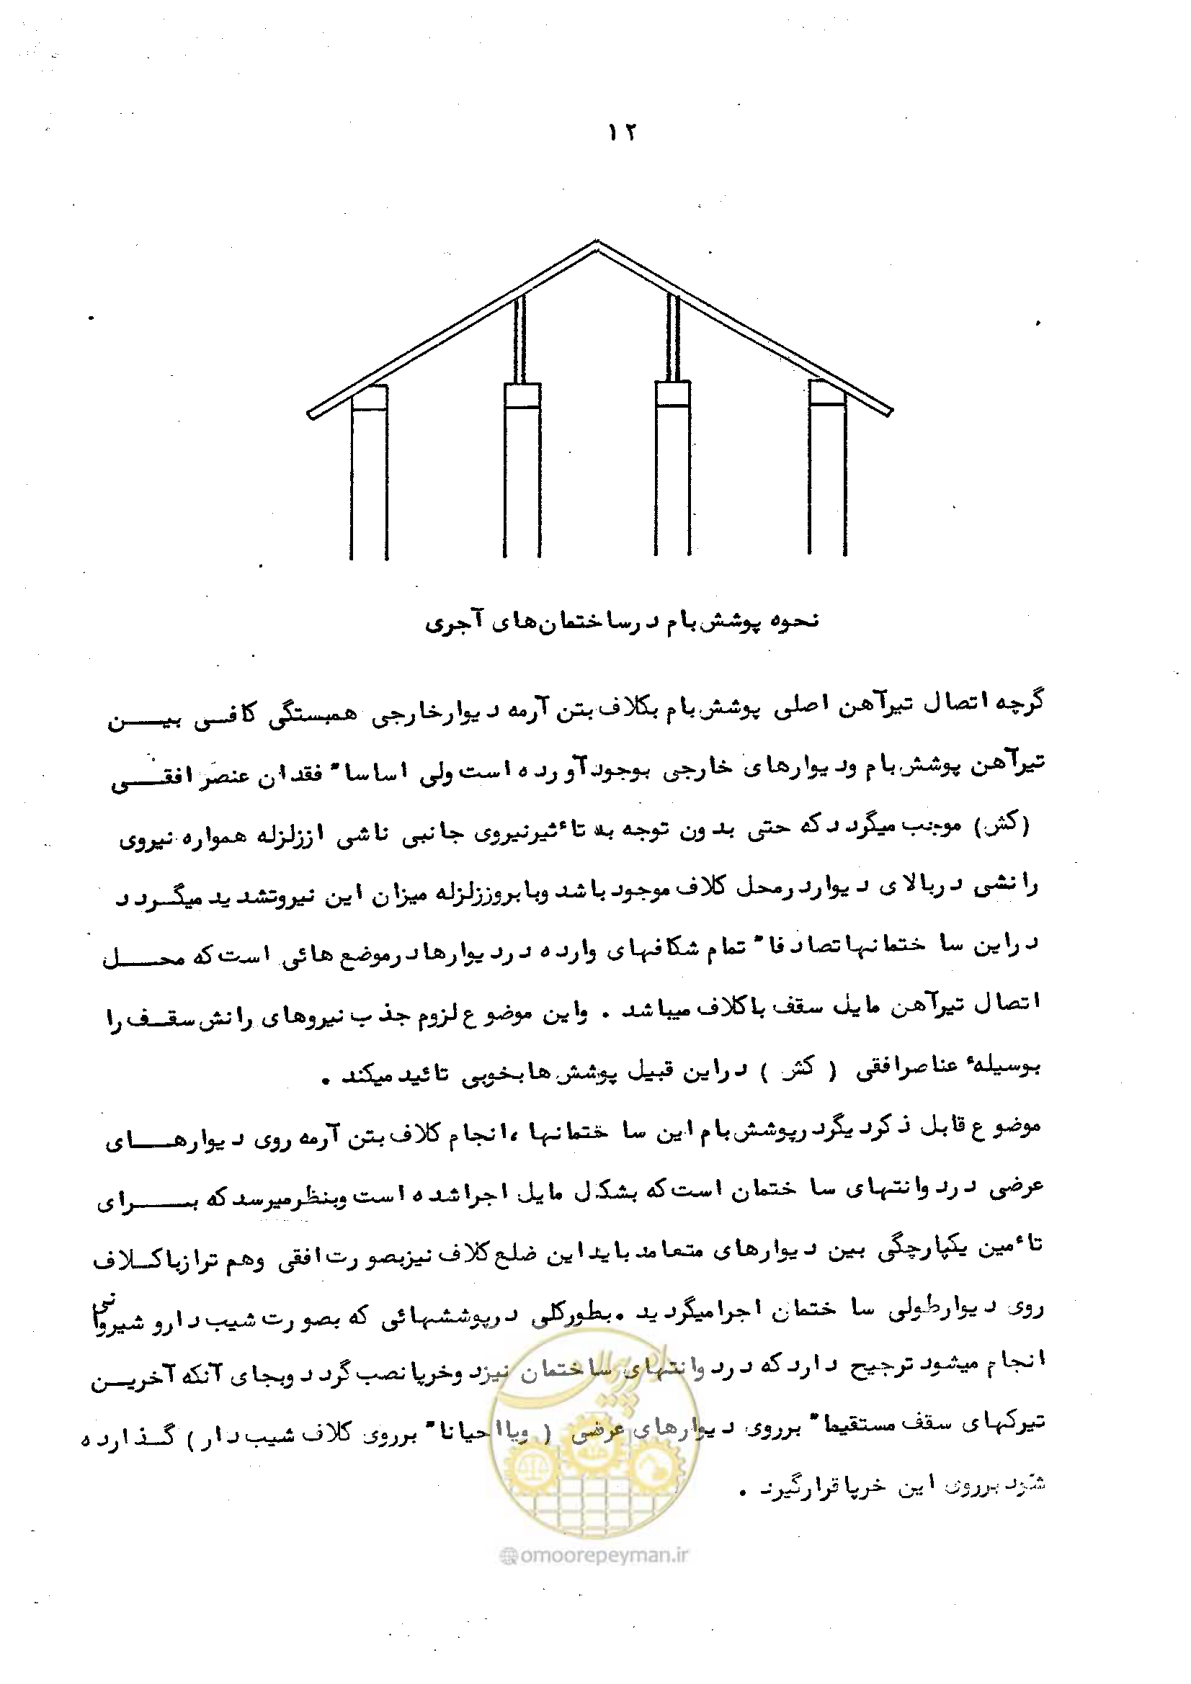 ۱۲
نحوه پوشش بام درساختمان‌های آجری
گرچه اتصال تیرآهن اصلی پوشش بام بکلاف بتن آرمه دیوارخارجی همبستگی کافی بین
تیرآهن پوشش بام ودیوارهای خارجی بوجودآورده است ولی اساسا" فقدان عنصر افقی
(کش) موجب میگرددکه حتی بدون توجه به تاءثیرنیروی جانبی ناشی اززلزله همواره نیروی
رانشی دربالای دیواردرمحل کلاف موجود باشد وبابروززلزله میزان این نیروتشدید میگردد
دراین ساختمانهاتصادفا" تمام شکافهای وارده دردیوارهادرموضع هائی است که محل
اتصال تیرآهن مایل سقف باکلاف میباشد . واین موضوع لزوم جذب نیروهای رانش سقف را
بوسیله‌ء عناصرافقی ( کش ) دراین قبیل پوشش هابخوبی تائید میکند .
موضوع قابل ذکردیگردرپوشش بام این ساختمانها ،انجام کلاف بتن آرمه روی دیوارهای
عرضی دردوانتهای ساختمان است که بشکل مایل اجراشده است وبنظرمیرسد که برای
تاءمین یکپارچگی بین دیوارهای متعامد بایداین ضلع کلاف نیزبصورت افقی وهم ترازباکلاف
روی دیوارطولی ساختمان اجرامیگردید .بطورکلی درپوششهائی که بصورت شیب دارو شیروانی
انجام میشود ترجیح داردکه دردوانتهای ساختمان نیزدوخرپانصب گردد وبجای آنکه آخرین
تیرکهای سقف مستقیما" برروی دیوارهای عرضی ( ویااحیانا" برروی کلاف شیب دار ) گذارده
شود برروی این خرپاقرارگیرند .
امور پیمان
@omoorepeyman.ir